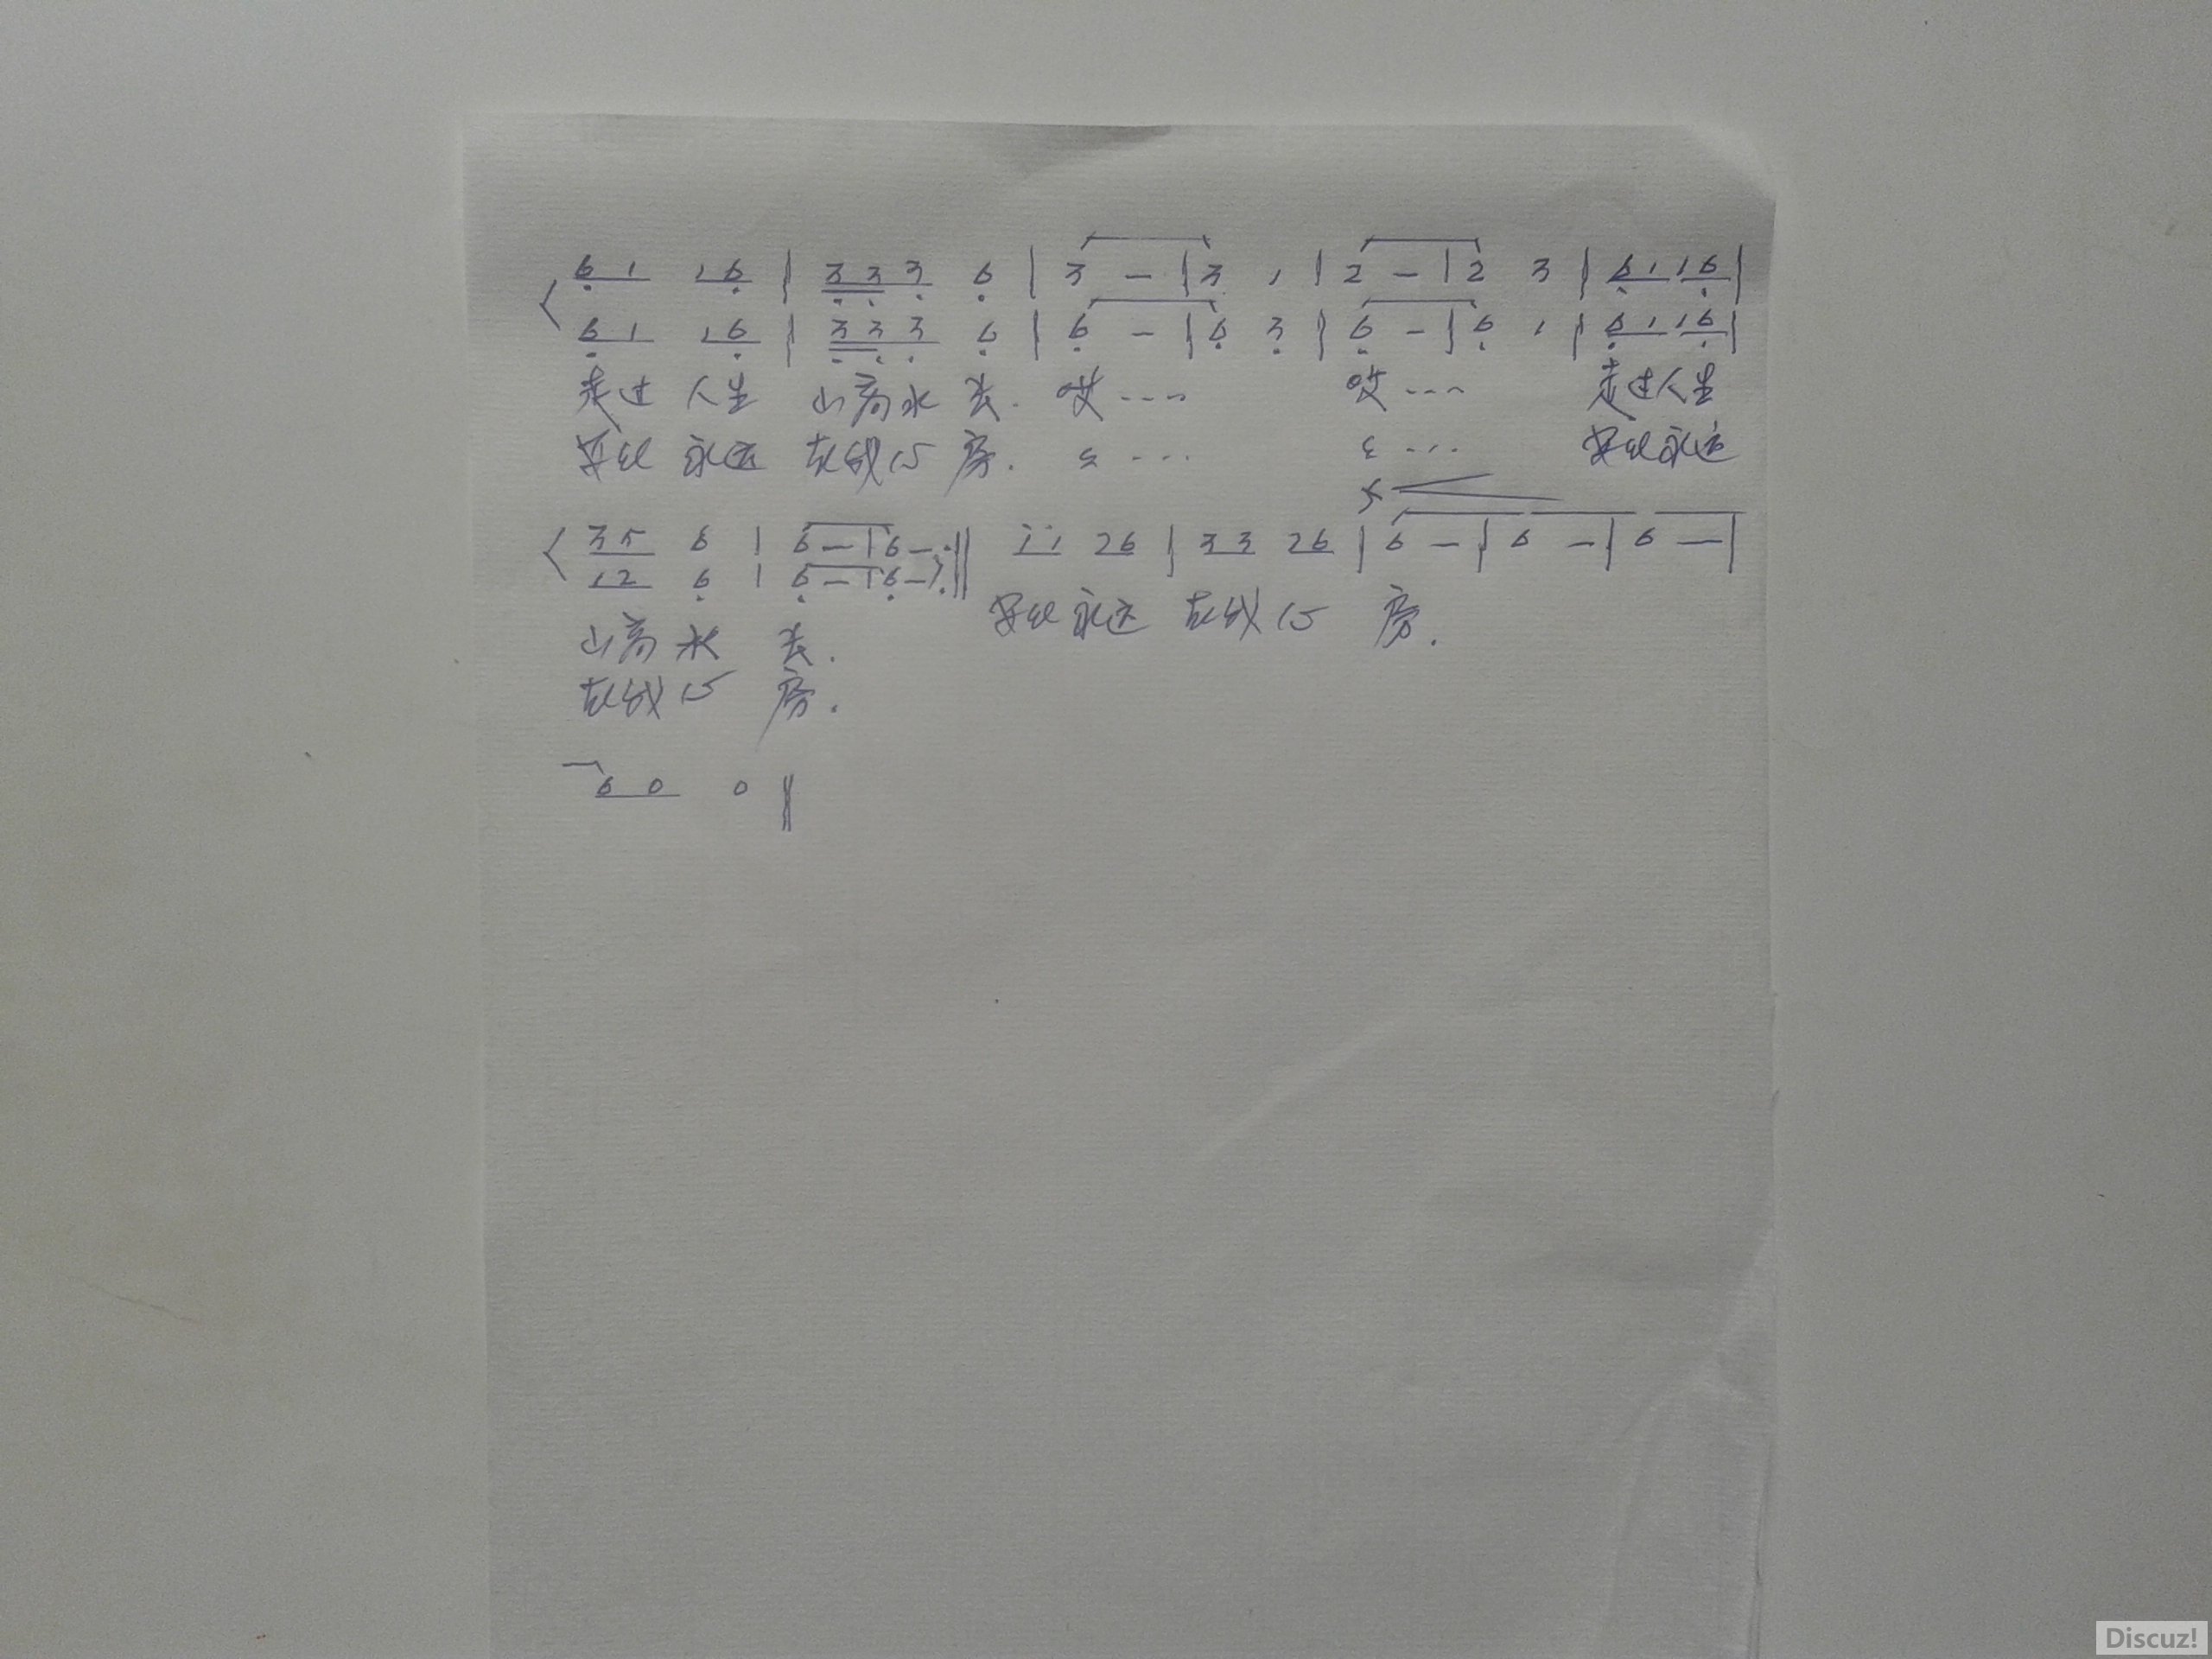 6 1 1 6 | 3 3 3 6 | 3 — | 3 1 | 2 — | 2 3 | 6 1 1 6 |
6 1 1 6 | 3 3 3 6 | 6 — | 6 3 | 6 — | 6 1 | 6 1 1 6 |
走过 人生 山高水长. 哎---- 哎---- 走过人生
永远 在我心 房. ... ... 永远
3 5 6 | 6 — | 6 — :|| 1 1 2 6 | 3 3 2 6 | 6 — | 6 — | 6 — |
1 2 6 | 6 — | 6 — :||
永远 在我心 房.
山高水 长.
在我心 房.
6 0 0 ||
Discuz!